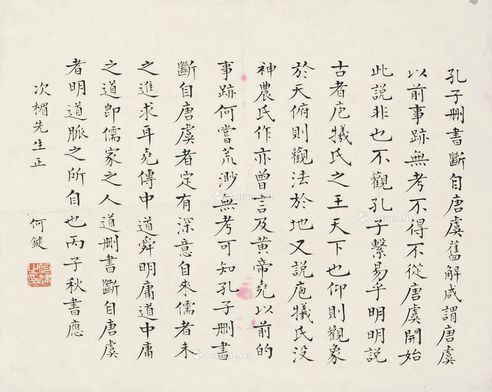 孔子刪書斷自唐虞舊解咸謂唐虞
以前事跡無考不得不從唐虞開始
此說非也不觀孔子繫易乎明明說
古者庖犧氏之王天下也仰則觀象
於天俯則觀法於地又說庖犧氏沒
神農氏作亦曾言及黃帝堯以前的
事跡何嘗荒渺無考可知孔子刪書
斷自唐虞者定有深意自來儒者未
之進求耳堯傳中道舜明庸道中庸
之道即儒家之人道刪書斷自唐虞
者明道脈之所自也丙子秋書應
次楣先生正
何鍵